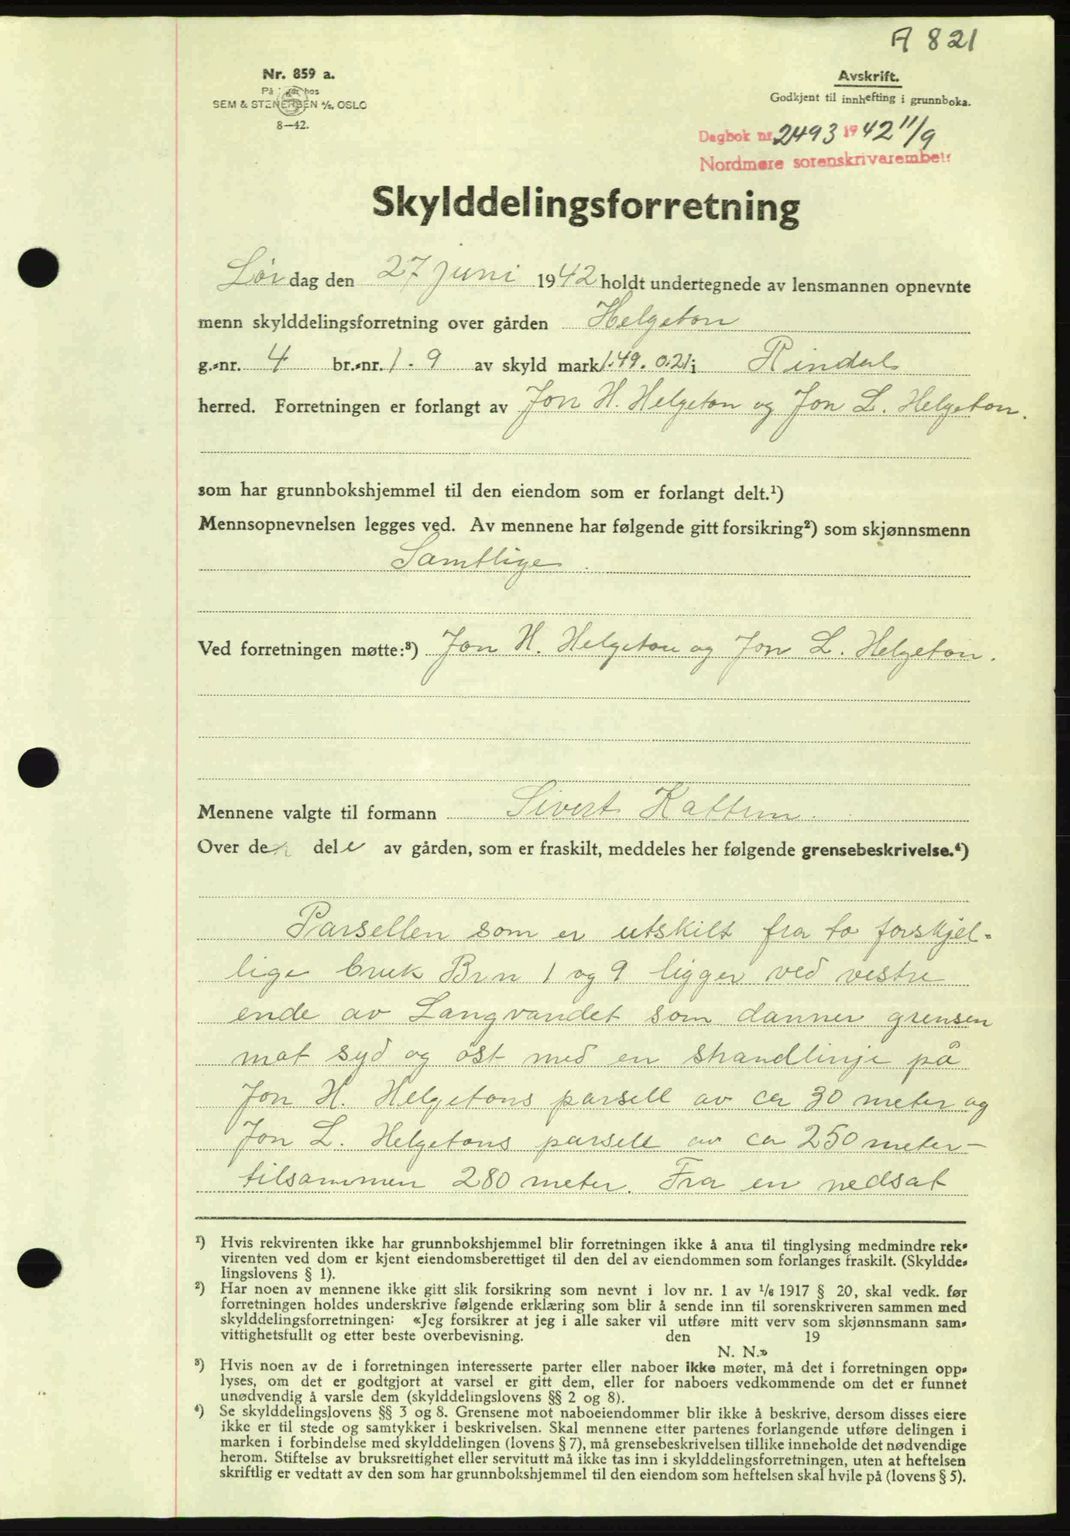 A 821
Nr. 859 a.
SEM & STENERSEN A/S, OSLO
8—42.
Avskrift.
Godkjent til innhefting i grunnboka.
Dagbok nr. 2493 1942 11/9
Nordmøre sorenskrivarembete
Skylddelingsforretning
Lør dag den 27 juni 1942 holdt undertegnede av lensmannen opnevnte
menn skylddelingsforretning over gården Helgeton
g.-nr. 4 br.-nr. 1 - 9 av skyld mark 1.49. 0.21 i Rindal
herred. Forretningen er forlangt av Jon H. Helgeton og Jon L. Helgeton.
som har grunnbokshjemmel til den eiendom som er forlangt delt.¹)
Mennsopnevnelsen legges ved. Av mennene har følgende gitt forsikring²) som skjønnsmenn
Samtlige.
Ved forretningen møtte:³) Jon H. Helgeton og Jon L. Helgeton.
Mennene valgte til formann Sivert Kattem.
Over de dele av gården, som er fraskilt, meddeles her følgende grensebeskrivelse.⁴)
Parsellen som er utskilt fra to forskjel-
lige bruk Brn 1 og 9 ligger ved vestre
ende av Langvandet som danner grensen
mot syd og øst med en strandlinje på
Jon H. Helgetons parsell av ca 30 meter og
Jon L. Helgetons parsell av ca 250 meter-
tilsammen 280 meter. Fra en nedsat
¹) Hvis rekvirenten ikke har grunnbokshjemmel blir forretningen ikke å anta til tinglysing medmindre rek-
virenten ved dom er kjent eiendomsberettiget til den del av eiendommen som forlanges fraskilt. (Skyldde-
lingslovens § 1).
²) Har noen av mennene ikke gitt slik forsikring som nevnt i lov nr. 1 av 1/6 1917 § 20, skal vedk. før
forretningen holdes underskrive følgende erklæring som blir å sende inn til sorenskriveren sammen med
skylddelingsforretningen: «Jeg forsikrer at jeg i alle saker vil utføre mitt verv som skjønnsmann sam-
vittighetsfullt og etter beste overbevisning. den 19
N. N.»
³) Hvis noen av de i forretningen interesserte parter eller naboer ikke møter, må det i forretningen opp-
lyses, om det er godtgjort at varsel er gitt dem, eller for naboers vedkommende om det er funnet
unødvendig å varsle dem (skylddelingslovens §§ 2 og 8).
⁴) Se skylddelingslovens §§ 3 og 8. Grensene mot naboeiendommer blir ikke å beskrive, dersom disses eiere
ikke er til stede og samtykker i beskrivelsen. Skal mennene etter partenes forlangende utføre delingen i
marken i forbindelse med skylddelingen (lovens § 7), må grensebeskrivelsen tillike inneholde det nødvendige
herom. Stiftelse av bruksrettighet eller servitutt må ikke tas inn i skylddelingsforretningen, uten at heftelsen
skriftlig er vedtatt av den som har grunnbokshjemmel til den eiendom som heftelsen skal hvile på (lovens § 5).